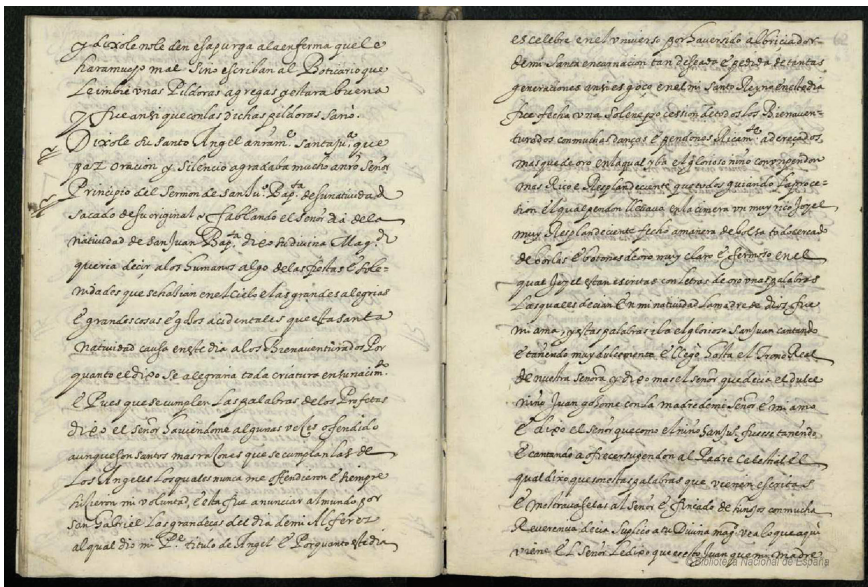 y dixole no le den esa purga a la enferma que le
hara mucho mal Sino escriban al Boticario que
le imbie vnas Pildoras agregas y estara buena
y fue ansi que con las dichas pildoras sano.
Dixole su Santo Angel a nra m.e santa Ju.a que
paz oracion y Silencio agradaba mucho a nro Señor
Principio del Sermon de San Ju.o Bap.ta de su natiuidad
sacado de su original fablando el Señor dia de la
natiuidad de San Juan Bap.ta dixo su Divina Mag.d
queria decir a los humanos algo de las fiestas e sole-
nidades que se hacian en el Cielo e las grandes alegrias
e grandes cosas e goços acidentales que esta santa
natiuidad causa en este dia a los Bienauenturados Por
quanto el dixo se alegraria toda criatura en su nacim.to
E Pues que se cumplen las palabras de los Profetas
dixo el señor haviendome algunas veces ofendido
aunque son santos mas raçon es que se cumplan las de
los Angeles los quales nunca me offendieron e siempre
hicieron mi voluntad e esta fue anunciar al mundo por
san Gabriel las grandeças del dia de mi Alferez
al qual dio mi P.e titulo de Angel e Porquanto este dia
es celebre en el vniverso por haver sido albriciador
de mi Santa encarnacion tan deseada e pedida de tantas
generaciones ansi es poco en el mi Santo Reyno en este dia
fice fecha vna solene procession de todos los Bienauen-
turados con muchas danças e pendones adereçados
mas que de oro en la qual yba el glorioso niño con vn pendon
mas Rico e Resplandeciente que todos guiando la proce-
sion el qual pendon llevava en la cimera vn muy rico Joyel
muy Resplandeciente fecho a manera de bolsa todo cercado
de borlas e botones de oro muy claro e fermoso en el
qual Joyel estan escritas con letras de oro vnas palabras
las quales decian En mi natiuidad la madre de dios fue
mi ama, y estas palabras iba el glorioso San Juan cantando
e tañendo muy dulcemente e llego hasta el Trono Real
de nuestra señora, y dixo mas el señor que decia el dulce
niño Juan goçome con la madre de mi Señor e mi amo
E dixo el señor que como el niño San Ju.o fuesse tañendo
e cantando a ofrecer su pendon al Padre Celestial el
qual dixo que vienen escritas
al Señor e fincado de hinojos con mucha
Reverencia decia Suplico a tu Divina mag.d vea lo que aqui
viene e el Señor le dixo que es esto Juan que mi madre
© Biblioteca Nacional de España